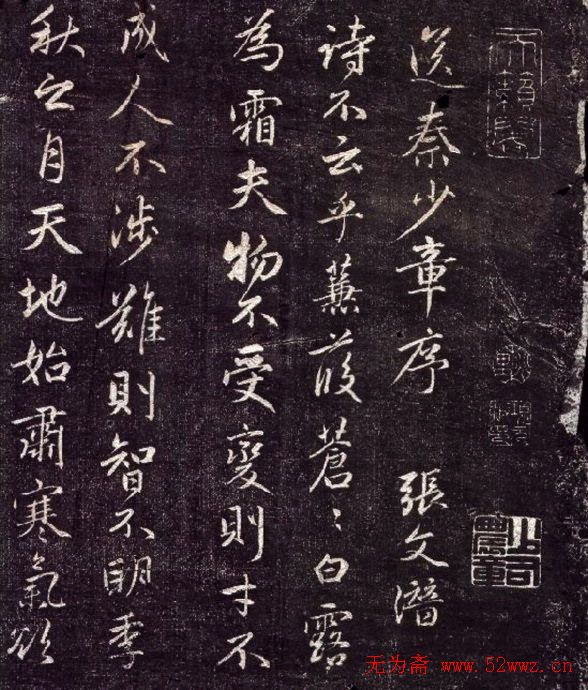 天籟閣
送秦少章序 張文潛
詩不云乎蒹葭蒼〻白露
為霜夫物不受變則才不
成人不涉難則智不明季
秋之月天地始肅寒氣欲
无为斋 www.52wwz.cn